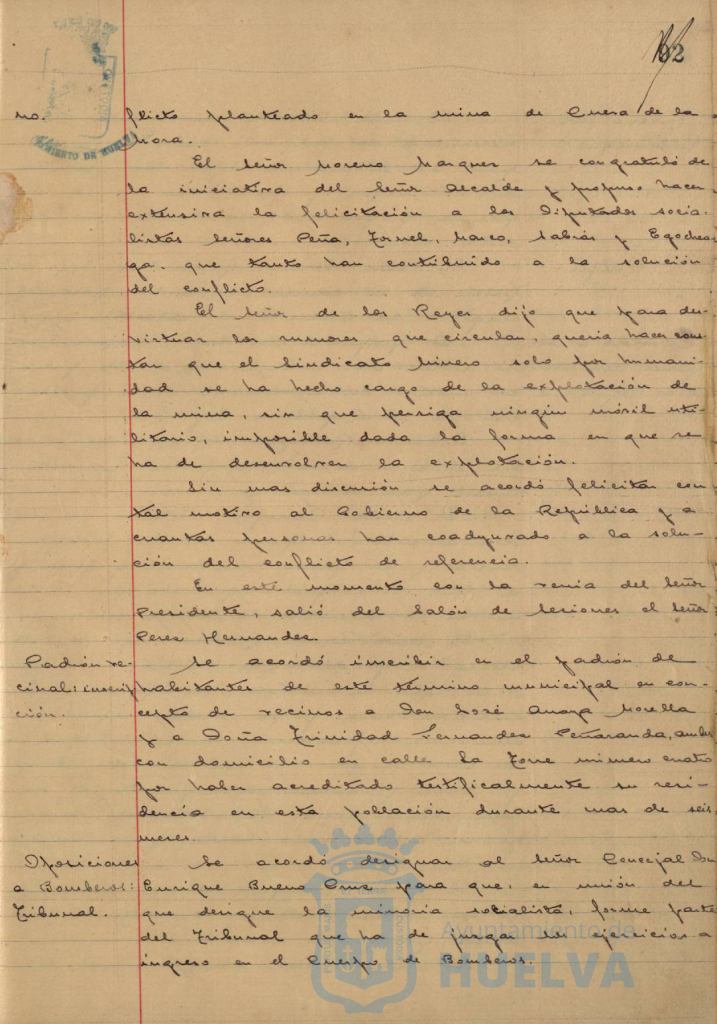 192
no. flicto planteado en la mina de Cueva de la
Mora.
El Señor Moreno Marquez se congratuló de
la iniciativa del Señor Alcalde y propuso hacer
extensiva la felicitación a los Diputados socia-
listas Señores Peña, Tornel, Marco, Sabrás y Egochea-
ga, que tanto han contribuido a la solución
del conflicto.
El Señor de los Reyes dijo que para des-
virtuar los rumores que circulan, queria hacer cons-
tar que el Sindicato Minero solo por humani-
dad se ha hecho cargo de la explotación de
la mina, sin que persiga ningún móvil uti-
litario, imposible dada la forma en que se
ha de desenvolver la explotación.
Sin mas discusión se acordó felicitar con
tal motivo al Gobierno de la República y a
cuantas personas han coadyuvado a la solu-
ción del conflicto de referencia.
En este momento con la venia del Señor
Presidente, salió del Salón de Sesiones el Señor
Perez Hernandez.
Padrón ve- Se acordó inscribir en el padrón de
cinal: inscrip habitantes de este término municipal en con-
ción. cepto de vecinos a Don José Morella
y a Doña Trinidad Fernandez Peñaranda, ambos
con domicilio en calle La Torre número cuatro
por haber acreditado testificalmente su resi-
dencia en esta población durante mas de seis
meses.
Oposiciones Se acordó designar al Señor Concejal Don
a Bomberos: Enrique Bueno Cruz para que, en unión del
Tribunal. que designe la minoria socialista, forme parte
del Tribunal que ha de juzgar los ejercicios a
ingreso en el Cuerpo de Bomberos.
Ayuntamiento de
HUELVA